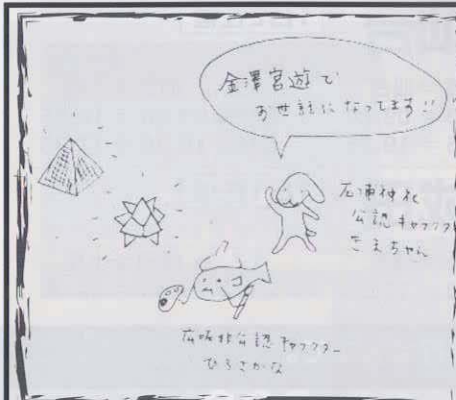 金澤宮遊で
お世話になってます!!
石浦神社
公認キャラクター
きまちゃん
広坂非公認キャラクター
ひろさかな